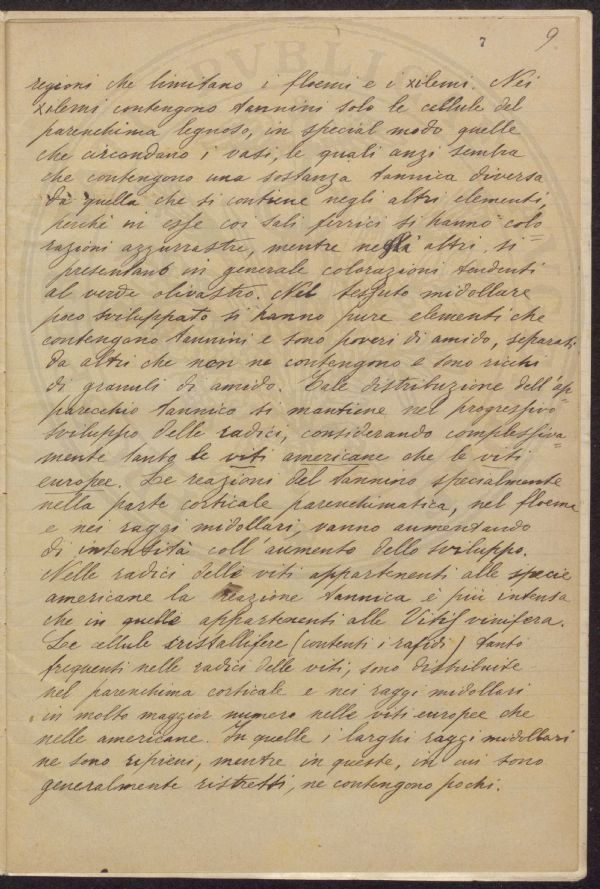 7 9.
regioni che limitano i floemi e i xilemi. Nei
xilemi contengono tannini solo le cellule del
parenchima legnoso, in special modo quelle
che circondano i vasi, le quali anzi sembra
che contengono una sostanza tannica diversa
da quella che si contiene negli altri elementi,
perchè in esse coi sali ferrici si hanno colo
razioni azzurrastre, mentre negli altri si
presentano in generale colorazioni tendenti
al verde olivastro. Nel tessuto midollare
poco sviluppato si hanno pure elementi che
contengono tannini e sono poveri di amido, separati
da altri che non ne contengono e sono ricchi
di granuli di amido. Tale distribuzione dell'ap=
parecchio tannico si mantiene nel progressivo
sviluppo delle radici, considerando complessiva=
mente tanto le viti americane che le viti
europee. Le reazioni del tannino specialmente
nella parte corticale parenchimatica, nel floema
e nei raggi midollari, vanno aumentando
di intensità coll'aumento dello sviluppo.
Nelle radici delle viti appartenenti alle specie
americane la reazione tannica è più intensa
che in quelle appartenenti alla Vitis vinifera.
Le cellule cristallifere (contenti i rafidi) tanto
frequenti nelle radici delle viti, sono distribuite
nel parenchima corticale e nei raggi midollari
in molto maggior numero nelle viti europee che
nelle americane. In quelle i larghi raggi midollari
ne sono ripieni, mentre in queste, in cui sono
generalmente ristretti, ne contengono pochi.
PVBLIC